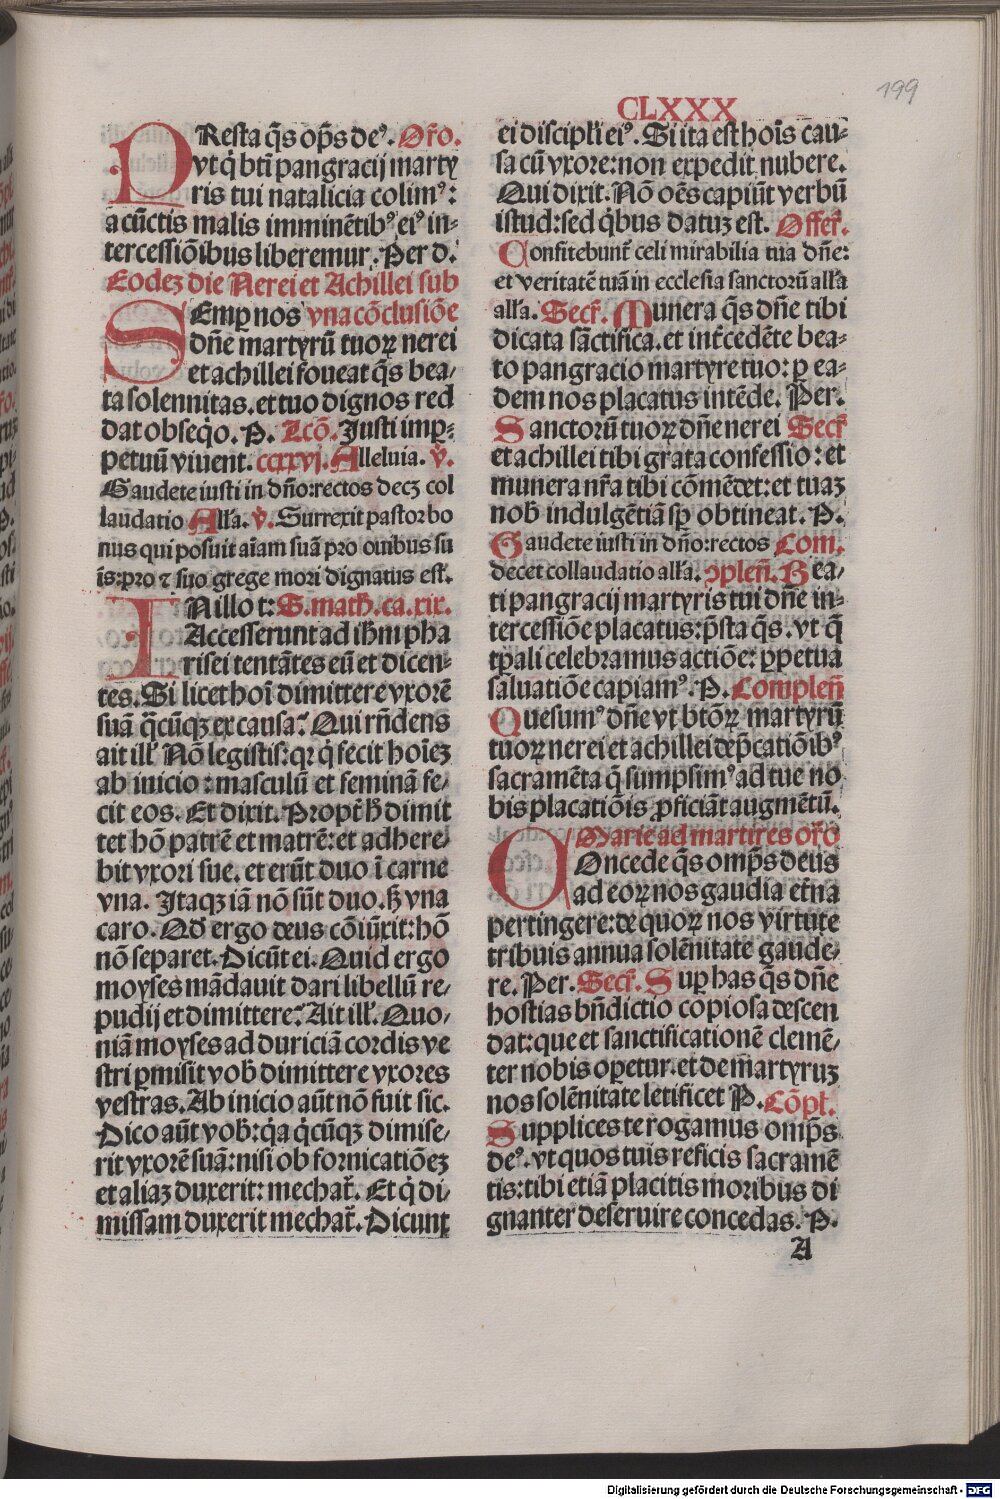 199
CLXXX
PResta q̃s op̃s deꝰ. Or̃o.
vt q̇ bt̃i pangracij marty
ris tui natalicia colimꝰ:
a cũctis malis imminẽtibꝰ eiꝰ in-
tercessiõibus liberemur. Per d.
Eodeȝ die Nerei et Achillei sub
SEmꝑ nos vna cõclusiõe
dñe martyrũ tuoꝝ nerei
et achillei foueat q̃s bea-
ta solennitas. et tuo dignos red
dat obseq̇o. P. Lcõ. Justi imꝑ-
petuũ viuent. ccxxvj. Alleluia. v̇.
Gaudete iusti in dño: rectos decȝ col
laudatio All'a. v̇. Surrexit pastor bo
nus qui posuit aĩam suã pro ouibus su
ĩs: pro ⁊ suo grege mori dignatus est.
INillo t: S. math. ca. xix.
Accesserunt ad ihm pha
risei tentãtes eũ et dicen-
tes. Si licet hoĩ dimittere vxorẽ
suã q̃cũqȝ ex causa? Qui rñdens
ait ill' Nõ legistis: qꝛ q̇ fecit hoĩeȝ
ab inicio: masculũ et feminã fe-
cit eos. Et dixit. Propt̃ h̃ dimit
tet hõ patrẽ et matrẽ: et adhere-
bit vxori sue. et erũt duo ĩ carne
vna. Itaqȝ iã nõ sũt duo. sȝ vna
caro. Qd̃ ergo deus cõiũxit: hõ
nõ separet. Dicũt ei. Quid ergo
moyses mãdauit dari libellũ re-
pudij et dimittere? Ait ill'. Quo-
niã moyses ad duriciã cordis ve
stri ꝑmisit vob̃ dimittere vxores
vestras. Ab inicio aũt nõ fuit sic.
Dico aũt vob̃: q̇a q̇cũqȝ dimise-
rit vxorẽ suã: nisi ob fornicatiõeȝ
et aliaȝ duxerit: mechat̃. Et q̇ di-
missam duxerit mechat̃. Dicunt
ei discipl'i eiꝰ. Si ita est hoĩs cau-
sa cũ vxore: non expedit nubere.
Qui dixit. Nõ oẽs capiũt verbũ
istud: sed q̇bus datuȝ est. Offer̃.
Confitebunt̃ celi mirabilia tua dñe:
et veritatẽ tuã in ecclesia sanctorũ all'a
all'a. Secr̃. Munera q̃s dñe tibi
dicata sãctifica. et int̃cedẽte bea-
to pangracio martyre tuo: ꝑ ea-
dem nos placatus intẽde. Per.
Sanctorũ tuoꝝ dñe nerei Secr̃
et achillei tibi grata confessio: et
munera nr̃a tibi cõmẽdet: et tuaȝ
nob̃ indulgẽtiã sꝑ obtineat. P.
Gaudete iusti in dño: rectos Com.
decet collaudatio all'a. ↄpleñ. Bea-
ti pangracij martyris tui dñe in-
tercessiõe placatus: p̃sta q̃s. vt q̃
tꝑali celebramus actiõe: ꝑpetua
saluatiõe capiamꝰ. P. Compleñ
Quesumꝰ dñe vt bt̃oꝝ martyrũ
tuoꝝ nerei et achillei dep̃catiõibꝰ
sacramẽta q̃ sumpsimꝰ ad tue no
bis placatiõis ꝓficiãt augmẽtũ.
Marie ad martires or̃o
COncede q̃s omp̃s deus
ad eoꝝ nos gaudia et̃na
pertingere: de quoꝝ nos virtute
tribuis annua solẽnitate gaude-
re. Per. Secr̃. Suꝑ has q̃s dñe
hostias bñdictio copiosa descen
dat: que et sanctificationẽ clemẽ-
ter nobis operetur. et de martyruȝ
nos solẽnitate letificet P. Cõpl.
Supplices te rogamus omp̃s
deꝰ. vt quos tuis reficis sacramẽ
tis: tibi etiã placitis moribus di
gnanter deseruire concedas. P.
A
Digitalisierung gefördert durch die Deutsche Forschungsgemeinschaft - DFG